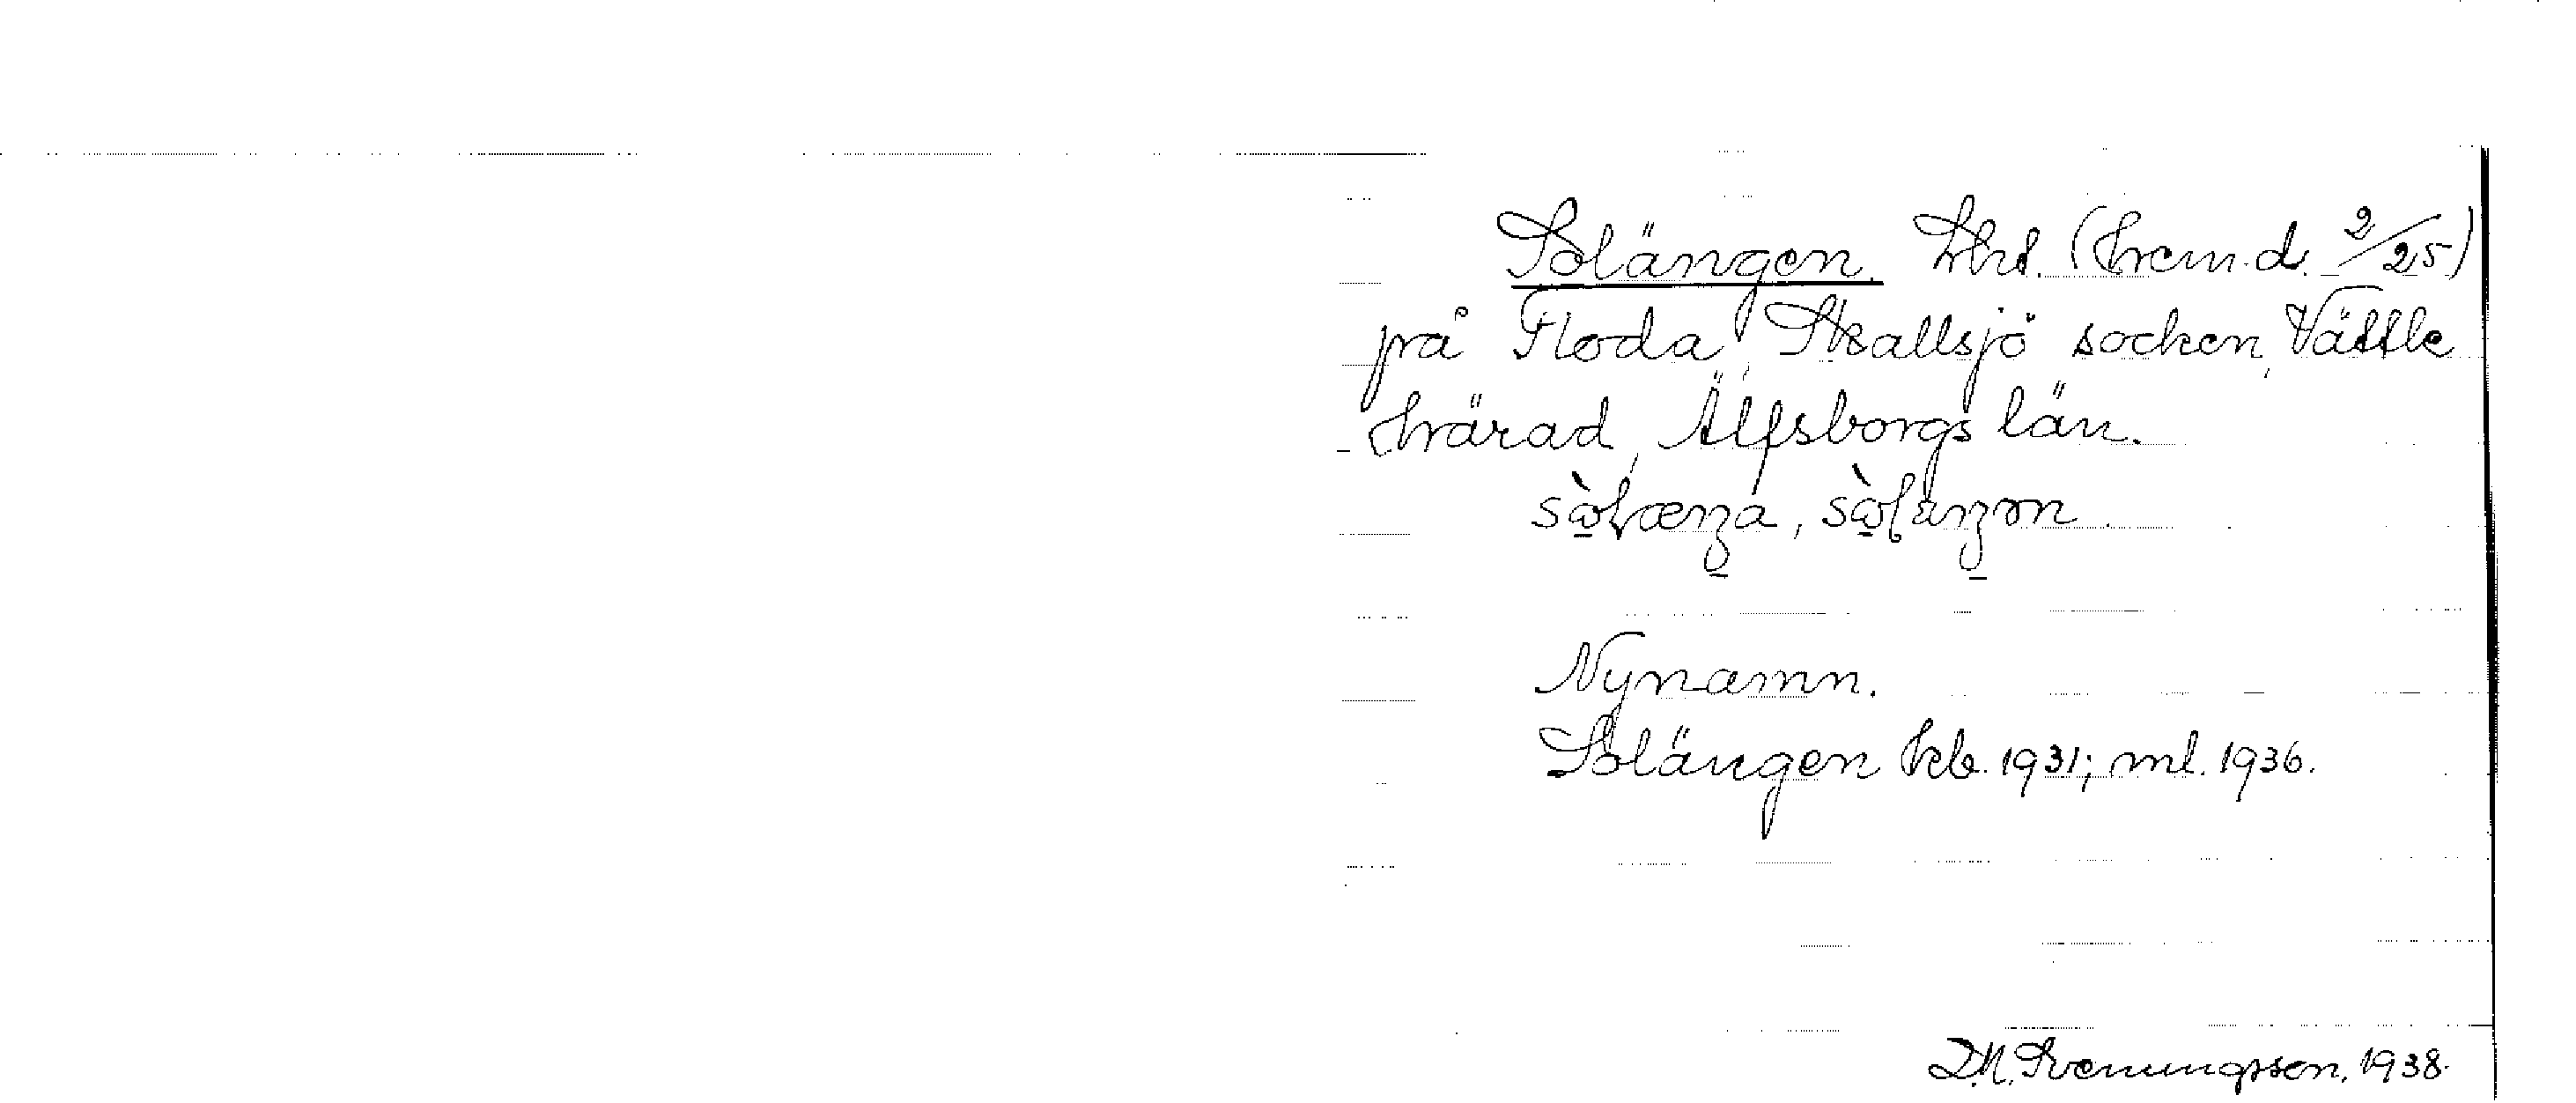 Solängen. Lht. (hem.d. 2/25)
på Floda, Skallsjö socken, Vättle
härad, Älfsborgs län.
Nynamn.
Solängen kb. 1931; ml. 1936.
D.N. Svenungsson. 1938.